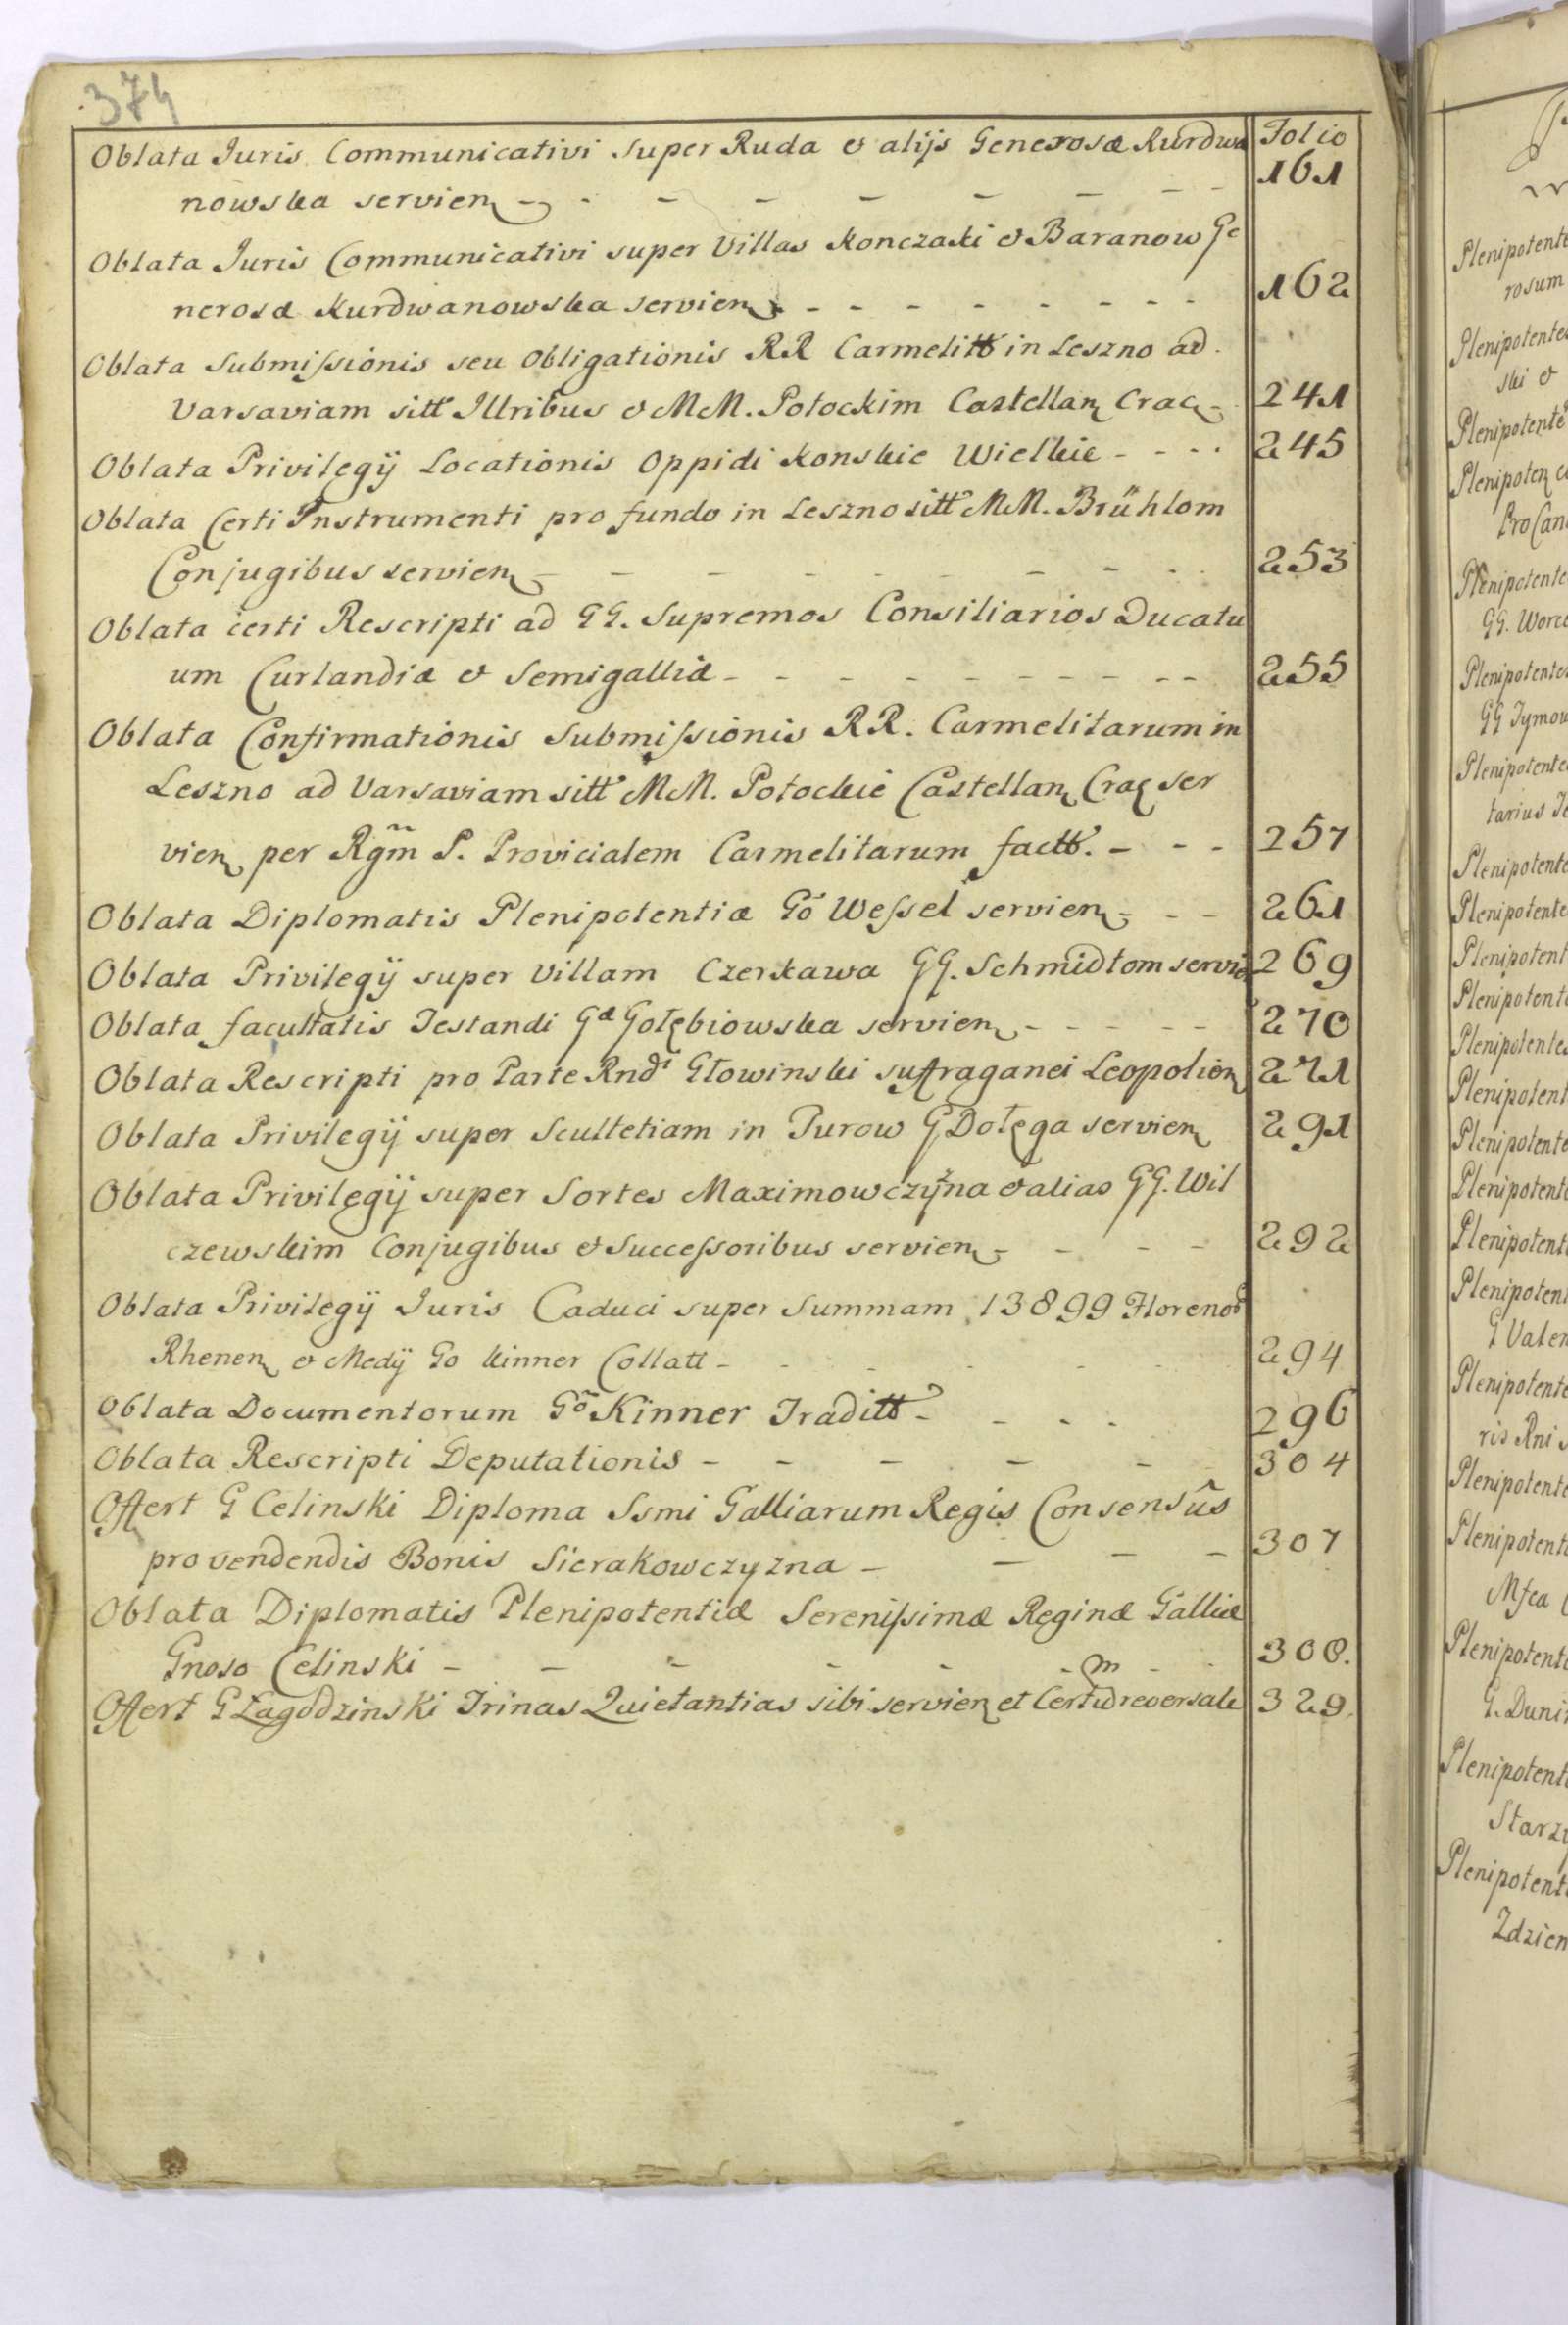 374
Folio
Oblata Juris Communicativi super Ruda & alijs Generosæ Kurdwa
nowska servien 161
Oblata Juris Communicativi super Villas Konczaki & Baranow Ge
nerosæ Kurdwanowska servien 162
Oblata Submissionis seu Obligationis RR Carmelitt in Leszno ad
Varsaviam sitt Illribus & MM. Potockim Castellan Crac 241
Oblata Privilegij Locationis Oppidi Konskie Wielkie 245
Oblata Certi Instrumenti pro fundo in Leszno sitt MM. Brühlom
Conjugibus servien 253
Oblata certi Rescripti ad GG. Supremos Consiliarios Ducatu
um Curlandiæ & Semigalliæ 255
Oblata Confirmationis Submissionis RR. Carmelitarum in
Leszno ad Varsaviam sitt MM. Potockie Castellan Crac ser
vien per Rgm P. Provicialem Carmelitarum factt. 257
Oblata Diplomatis Plenipotentiæ Go Wessel servien 261
Oblata Privilegij super Villam Czerkawa GG. Schmidtom servie 269
Oblata facultatis Testandi Gæ Gołębiowska servien 270
Oblata Rescripti pro Parte Rndi Głowinski suffraganei Leopolien 271
Oblata Privilegij super Scultetiam in Turow G Dołęga servien 291
Oblata Privilegij super Sortes Maximowczyżna & alias GG. Wil
czewskim Conjugibus & Successoribus servien 292
Oblata Privilegij Juris Caduci super Summam 13899 Floreno
Rhenen & Medij Go Kinner Collatt 294
Oblata Documentorum Go Kinner Traditt 296
Oblata Rescripti Deputationis 304
Offert G Celinski Diploma Ssmi Galliarum Regis Consensûs
pro vendendis Bonis Sierakowczyzna 307
Oblata Diplomatis Plenipotentiæ Serenissimæ Reginæ Galliæ
Gnoso Celinski 308.
Offert G Łagodzinski Trinas Quietantias sibi servien et Certum reversale 329
Plenipotente
rosum
Plenipotentes
ski &
Plenipotente
Plenipoten
Pro Can
Plenipotente
GG. Worce
Plenipotentes
GG Tymow
Plenipotente
tarius
Plenipotente
Plenipotente
Plenipotent
Plenipotent
Plenipotentes
Plenipotent
Plenipotente
Plenipotent
Plenipotent
Plenipoten
G Valen
Plenipotente
ris Rni
Plenipotente
Plenipotent
Mfca
Plenipotent
G. Duni
Plenipotent
Starz
Plenipotent
Zdzien